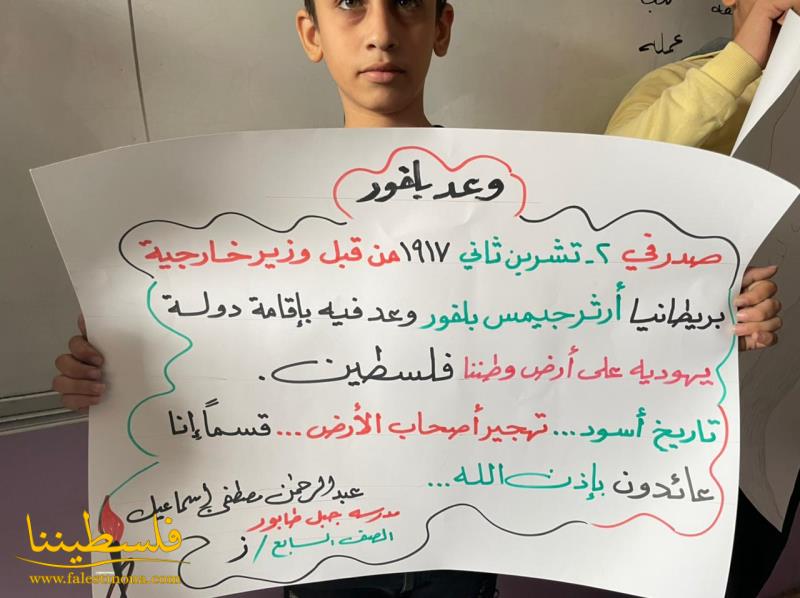 وعد بلفور
صدر في ٢ - تشرين ثاني ١٩١٧ من قبل وزير خارجية
بريطانيا أرثر جيمس بلفور وعد فيه بإقامة دولة
يهوديه على أرض وطننا فلسطين .
تاريخ أسود ... تهجير أصحاب الأرض ... قسماً إنا
عائدون بإذن الله ...
عبد الرحمن مصطفى إسماعيل
مدرسه جبل طابور
الصف السابع / ز
فلسطيننا
www.falestinona.com
عمله